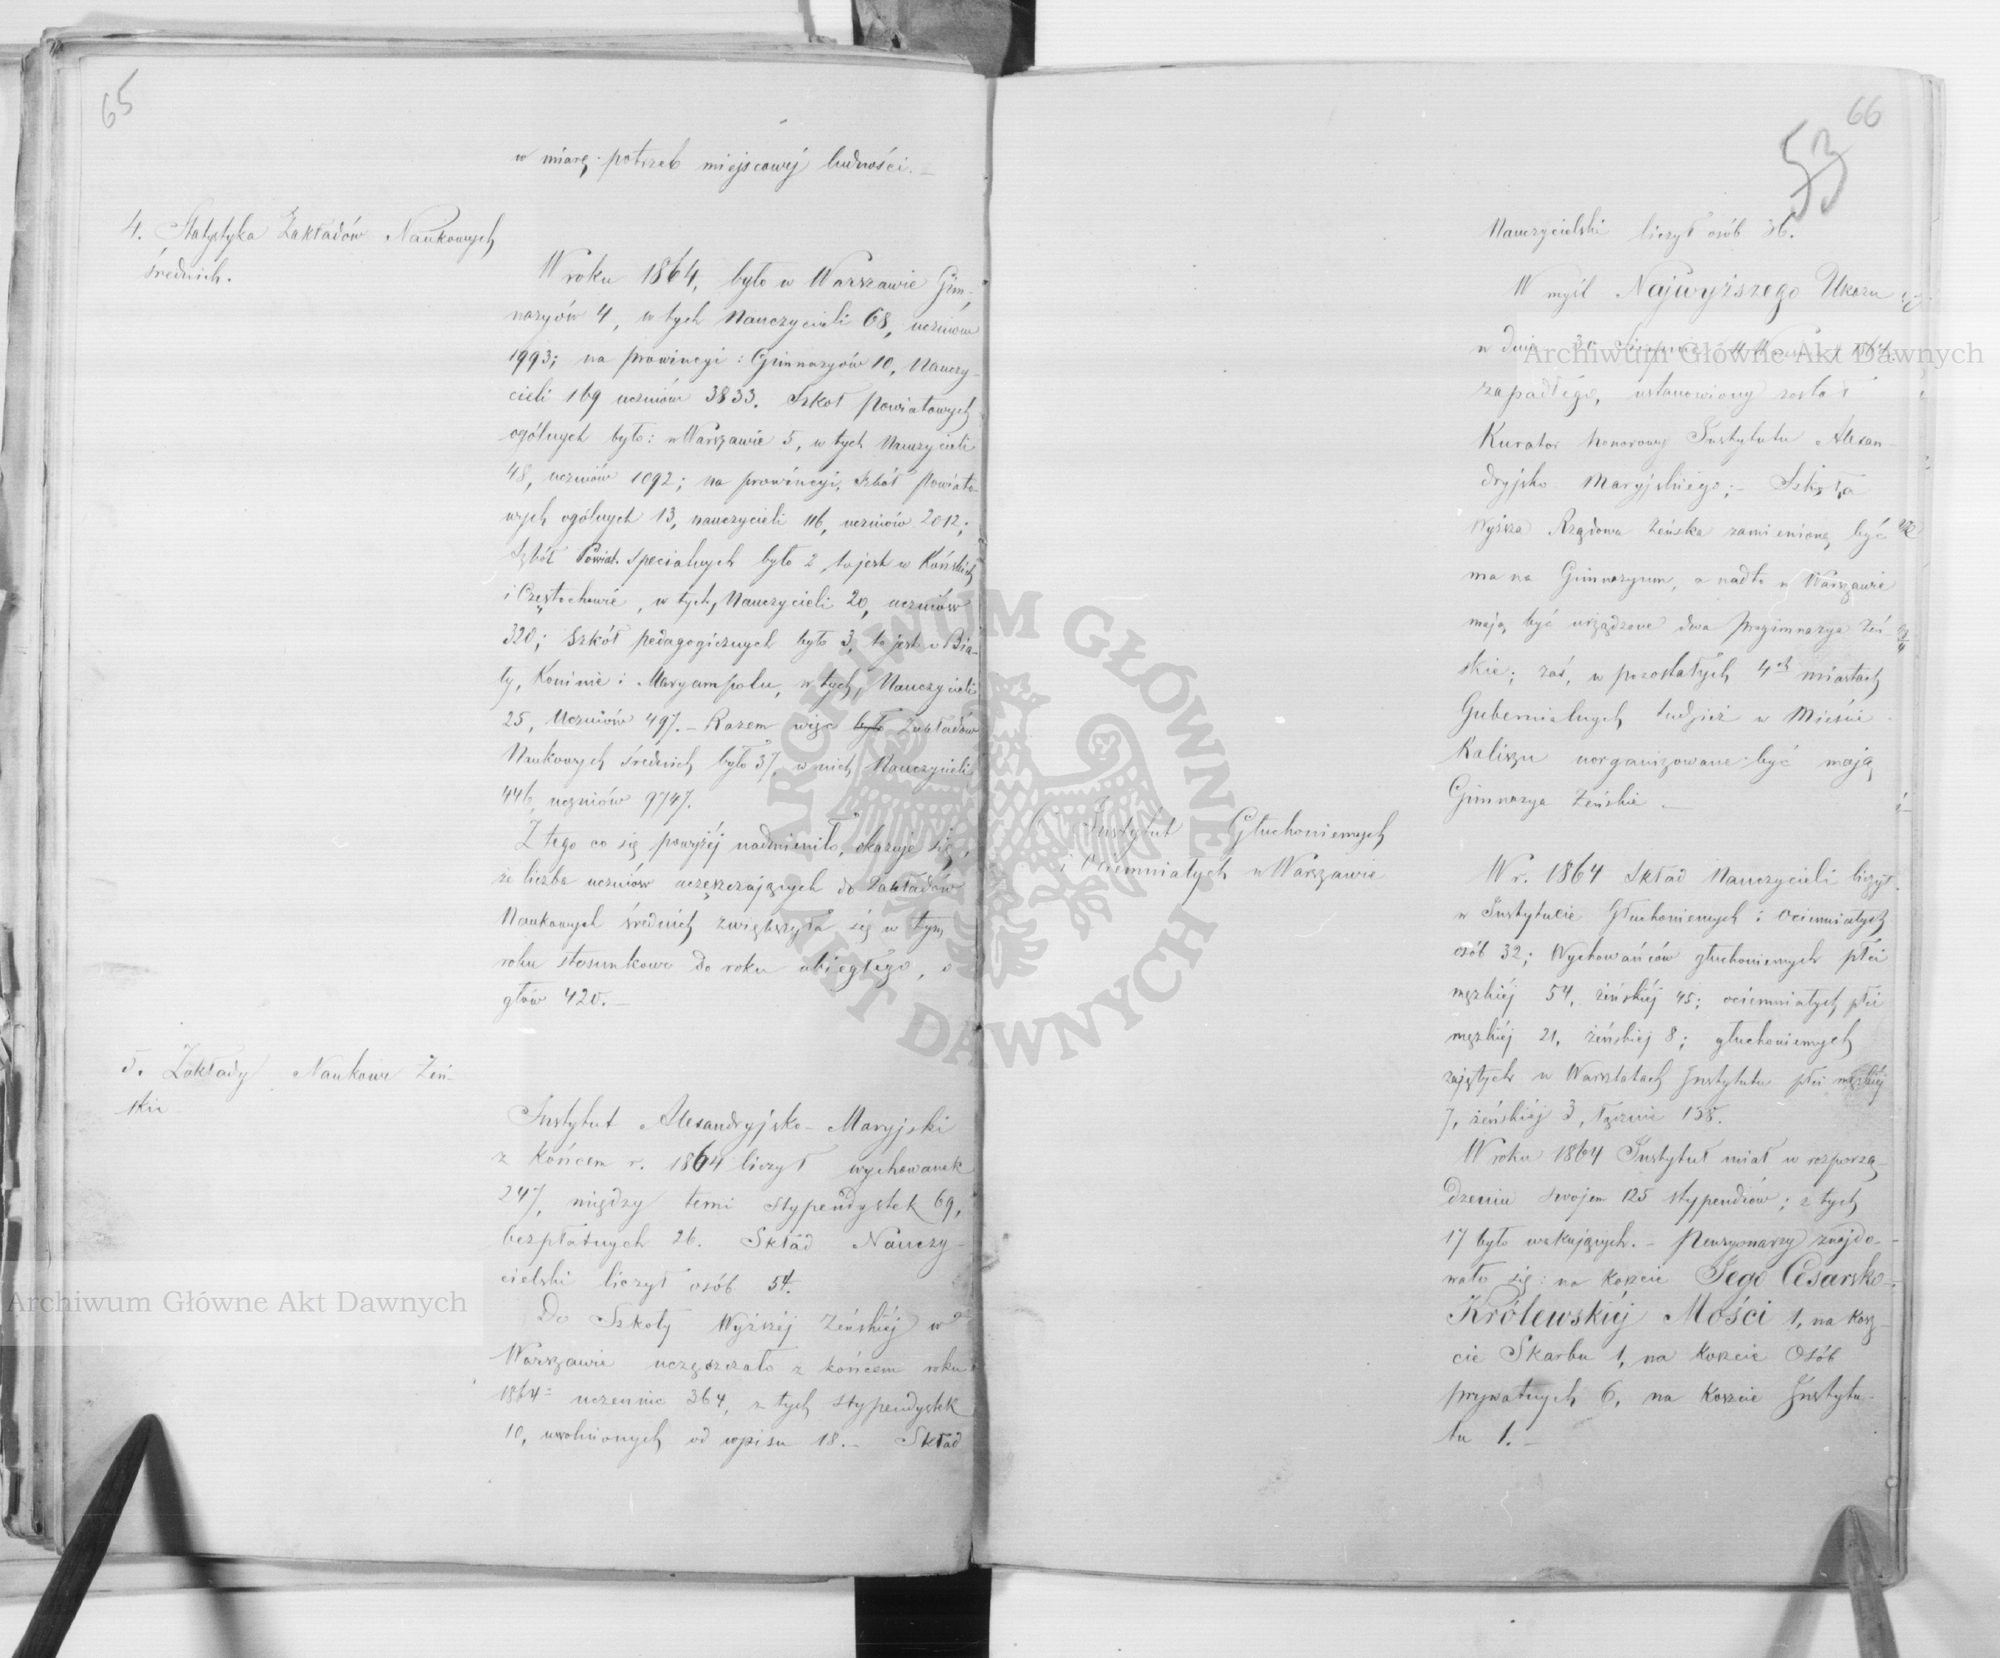 65
w miarę potrzeb miejscowéj ludności. –
4. Statystyka Zakładów Naukowych
średnich.
W roku 1864, było w Warszawie Gim-
nazyów 4, w tych Nauczycieli 68, uczniów
1993; na prowincyi: Gimnazyów 10, Nauczy-
cieli 169 uczniów 3833. Szkół Powiatowych
ogólnych było: w Warszawie 5, w tych Nauczycieli
48, uczniów 1092; na prowincyi, Szkół Powiato-
wych ogólnych 13, nauczycieli 116, uczniów 2012;
Szkół Powiat. specialnych było 2, to jest w Końskich
i Częstochowie, w tych, Nauczycieli 20, uczniów
320; Szkół pedagogicznych było 3, to jest w Bia-
ły, Koninie i Maryampolu, w tych, Nauczycieli
25, Uczniów 497. – Razem więc było Zakładów
Naukowych średnich było 37, w nich Nauczycieli
446, uczniów 9747.
Z tego co się powyżéj nadmieniło, okazuje się,
że liczba uczniów uczęszczających do Zakładów
Naukowych średnich zwiększyła się w tym
roku stosunkowo do roku ubiegłego, o
głów 420. –
5. Zakłady Naukowe Żeń-
skie
Instytut Alexandryjsko-Maryjski
z końcem r. 1864 liczył wychowanek
247, między temi stypendystek 69,
bezpłatnych 26. Skład Nauczy-
cielski liczył osób 54.
Do Szkoły Wyższéj Żeńskiéj w
Warszawie uczęszczało z końcem roku
1864 uczennic 364, z tych stypendystek
10, uwolnionych od wpisu 18. – Skład
66
53
Nauczycielski liczył osób 36.
W myśl Najwyższego Ukazu
w dniu 30 Sierpnia 1864
zapadłego, ustanowiony został
Kurator honorowy Instytutu Alexan-
dryjsko Maryjskiego; – Szkoła
Wyższa Rządowa Żeńska zamienioną być
ma na Gimnazyum, a nadto w Warszawie
mają być urządzone dwa progimnazya żeń-
skie; zaś, w pozostałych 4ch miastach
Gubernialnych, tudzież w Mieście
Kaliszu uorganizowane być mają
Gimnazya Żeńskie –
Instytut Głuchoniemych
i Ociemniałych w Warszawie
W r. 1864 Skład Nauczycieli liczył
w Instytucie Głuchoniemych i Ociemniałych
osób 32; Wychowańców głuchoniemych płci
męzkiéj 54, żeńskiéj 45; ociemniałych, płci
męzkiéj 21, żeńskiéj 8; głuchoniemych
zajętych w Warsztatach Instytutu płci męzkiéj
7, żeńskiéj 3, łącznie 138.
W roku 1864 Instytut miał w rozporzą-
dzeniu swojem 125 stypendiów; z tych
17 było wakujących. – Pensyonarzy znajdo-
wało się: na koszcie Jego Cesarsko-
Królewskiéj Mości 1, na kosz-
cie Skarbu 1, na koszcie Osób
prywatnych 6, na koszcie Instytu-
tu 1. –
Archiwum Główne Akt Dawnych
Archiwum Główne Akt Dawnych
ARCHIWUM GŁÓWNE AKT DAWNYCH